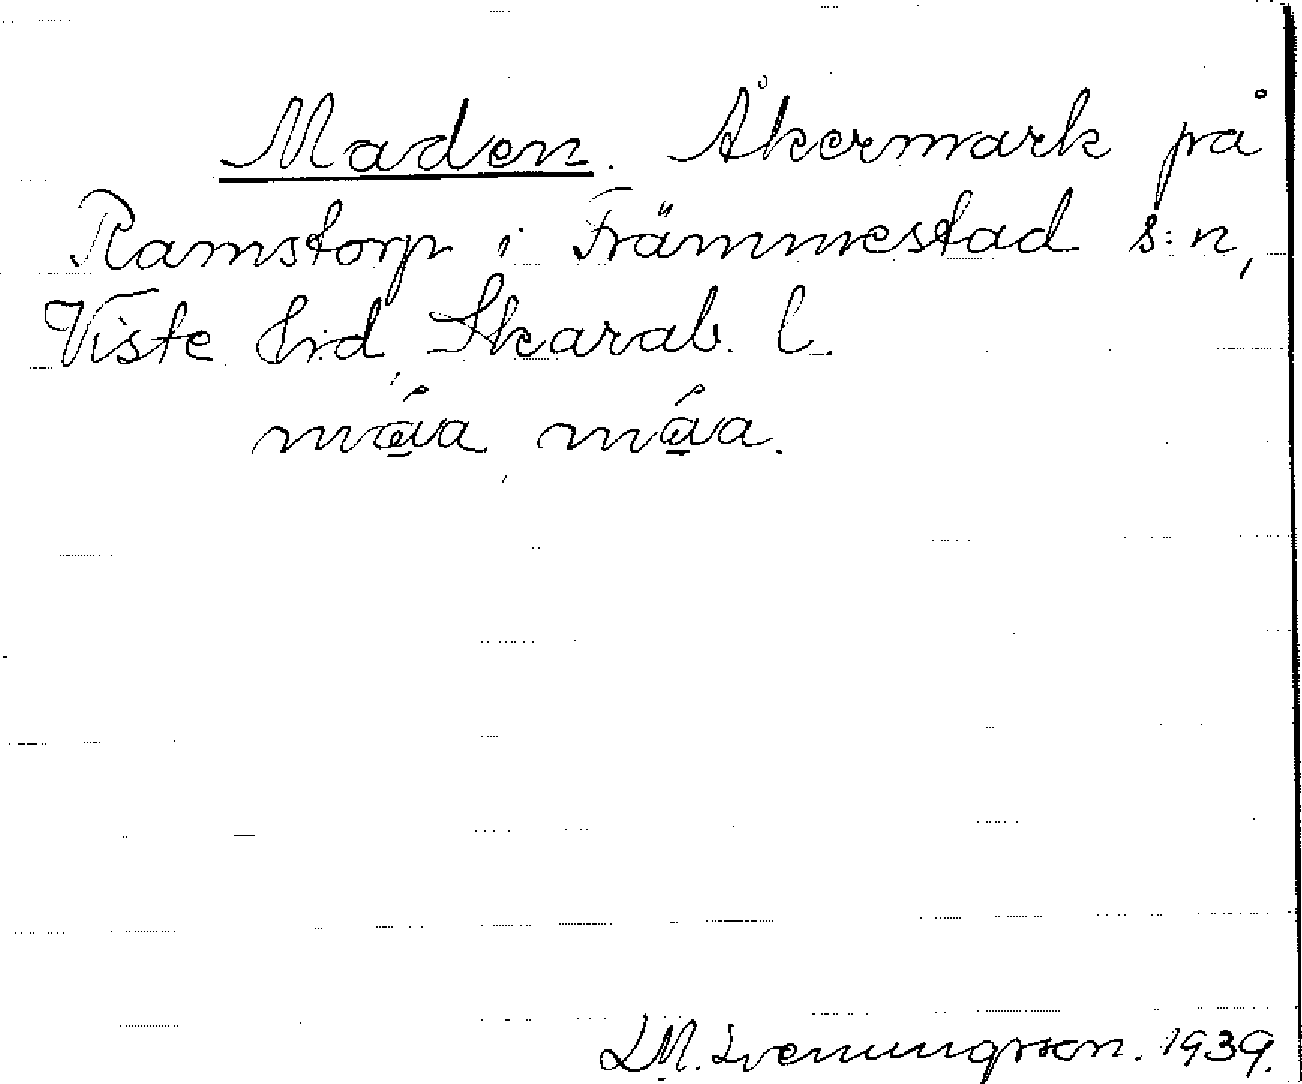 Maden. Åkermark på
Ramstorp i Främmestad s:n,
Viste hrd, Skarab. l.
máa, máa.
L.M. Svenungsson. 1939.